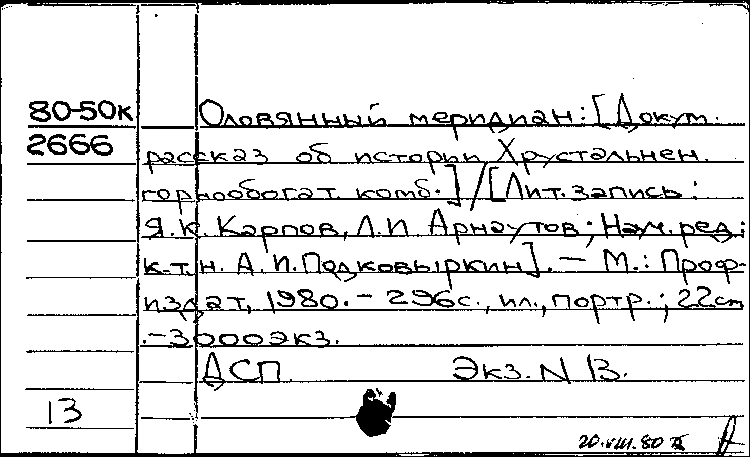 80-50к Оловянный меридиан: [Докум.
2666 рассказ об истории Хрустальнен.
горнообогат. комб.] / [Лит. запись:
Я.К. Карпов, Л.П. Арнаутов; Науч. ред.:
к.т.н. А.П. Подковыркин]. — М.: Проф-
издат, 1980. - 296с., ил., портр.; 22см
.-3000экз.
ДСП Экз. N 13.
13
20.VIII.80